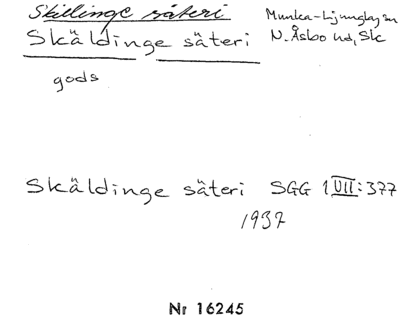 Skillinge säteri
Munka-Ljungby sn
Skäldinge säteri
N. Åsbo hd, Sk
gods
Skäldinge säteri SGG 1 VII:377
1937
Nr 16245